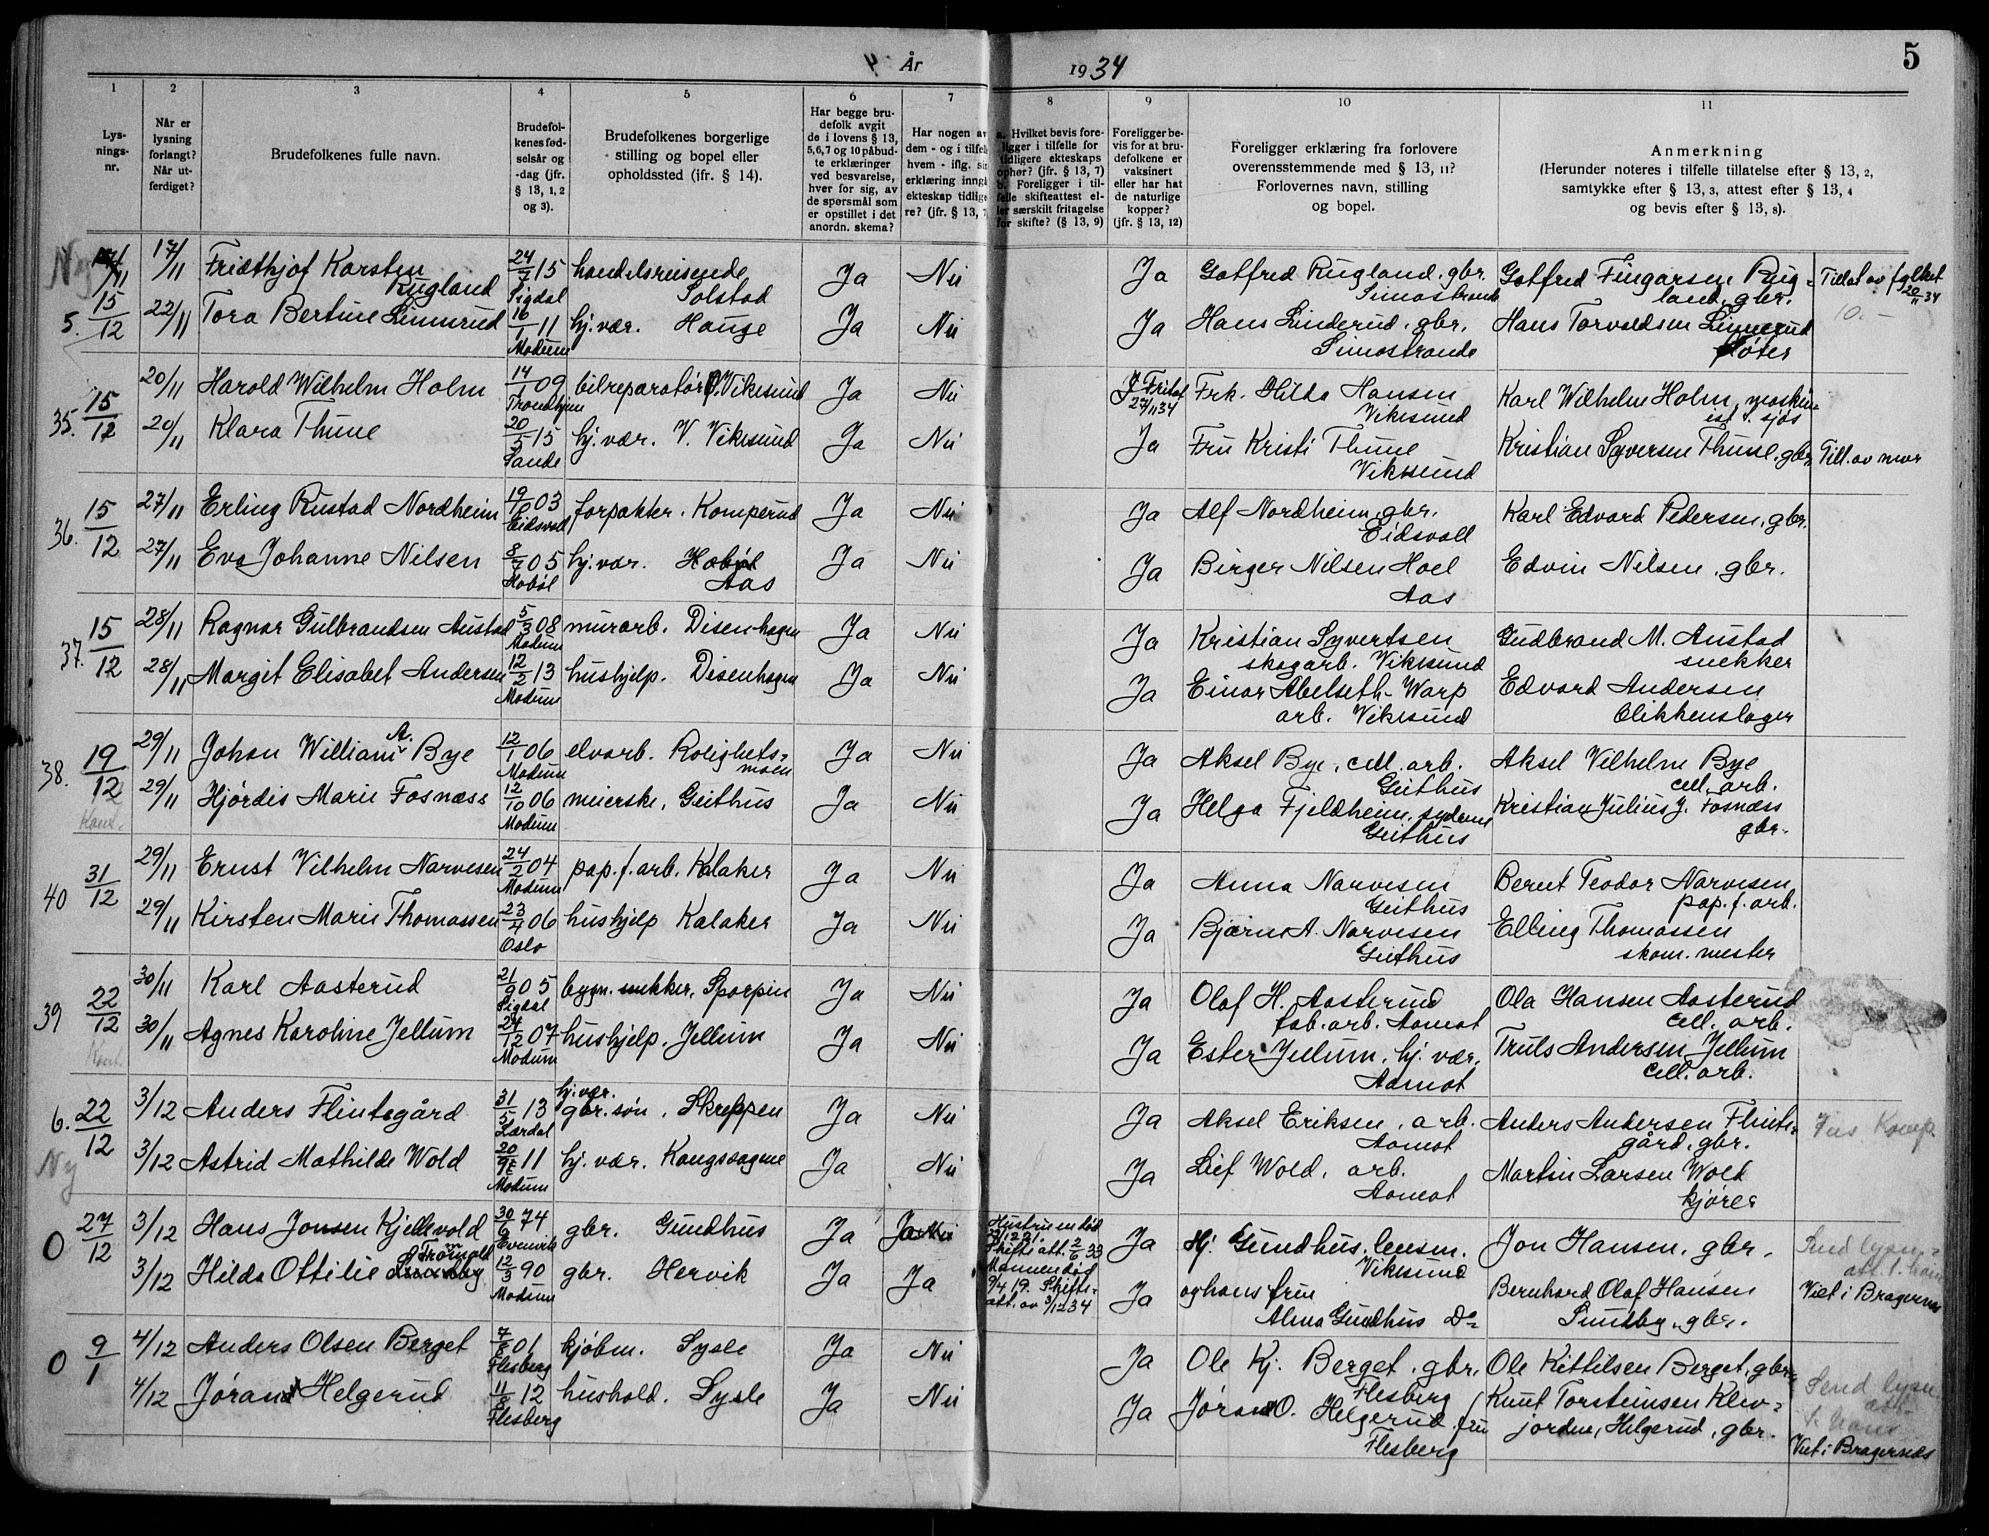 År 1934
5
1 2 3 4 5 6 7 8 9 10 11
Lys-
nings-
nr.
Når er
lysning
forlangt?
Når ut-
ferdiget?
Brudefolkenes fulle navn.
Brudefol-
kenes fød-
selsår og
-dag (jfr.
§ 13, 1, 2
og 3).
Brudefolkenes borgerlige
stilling og bopel eller
opholdssted (ifr. § 14).
Har begge bru-
defolk avgit
de i lovens § 13,
5,6,7 og 10 påbud-
te erklæringer
ved besvarelse,
hver for sig, av
de spørsmål som
er opstillet i det
anordn. skema?
Har nogen av
dem - og i tilfelle
hvem - iflg. sin
erklæring inngå
ekteskap tidlige-
re? (jfr. § 13, 7
a. Hvilket bevis fore-
ligger i tilfelle for
tidligere ekteskaps
ophør? (jfr. § 13, 7)
b. Foreligger i til-
felle skifteattest el-
ler særskilt fritagelse
for skifte? (§ 13, 9)
Foreligger be-
vis for at bru-
defolkene er
vaksinert
eller har hat
de naturlige
kopper?
(jfr. § 13, 12)
Foreligger erklæring fra forlovere
overensstemmende med § 13, 11?
Forlovernes navn, stilling
og bopel.
Anmerkning
(Herunder noteres i tilfelle tillatelse efter § 13, 2,
samtykke efter § 13, 3, attest efter § 13, 4
og bevis efter § 13, 8).
Ny 17/11 Fridthjof Karsten Rugland 24/7 15 Sigdal handelsreisende, Solstad Ja Nei Ja Gotfred Rugland, gbr. Simostranda Gotfred Fingarsen Rug-land, gbr. Tillat av fylket 20/11 34
5. 15/12 22/11 Tora Bertine Linnerud 16/1 11 Modum hj. vær. Hauge Ja Nei Ja Hans Linderud, gbr. Simostrande Hans Torvaldsen Linnerud fløter 10.-
35. 15/12 20/11 Harold Wilhelm Holm 14/1 09 Trondhjem bilreparatør, V. Vikesund Ja Nei Fritat 27/11 34 Frk. Hilda Hansen Vikesund Karl Wilhelm Holm, maskin-ist t. sjøs
20/11 Klara Thune 20/5 15 Sande hj. vær. V. Vikesund Ja Nei Ja Fru Kristi Thune Vikesund Kristian Syversen Thune, gbr. Till. av mor
36. 15/12 27/11 Erling Rustad Nordheim 19/1 03 Eidsvold forpakter. Komperud Ja Nei Ja Alf Nordheim, gbr. Eidsvoll Karl Edvard Pedersen, gbr.
27/11 Eva Johanne Nilsen 8/7 05 Hobøl hj. vær. Hobøl Aas Ja Nei Ja Birger Nilsen Hoel Aas Edvin Nilsen, gbr.
37. 15/12 28/11 Ragnar Gulbrandsen Austad 5/3 08 Modum murarb. Disenhagen Ja Nei Ja Kristian Syvertsen skogarb. Vikesund Gudbrand M. Austad snekker
28/11 Margit Elisabet Andersen 12/2 13 Modum hushjelp. Disenhagen Ja Nei Ja Einar Abelseth-Warp arb. Vikesund Edvard Andersen blikkenslager
38. 19/12 29/11 Johan William A. Bye 12/1 06 Modum elvarb. Rolighets-moen Ja Nei Ja Aksel Bye, cell. arb. Geithus Aksel Vilhelm Bye cell. arb.
29/11 Hjördis Marie Fosnæss 12/10 06 Modum meierske, Geithus Ja Nei Ja Helga Fjeldheim, syderske Geithus Kristian Julius J. Fosnæss gbr.
40 31/12 29/11 Ernst Vilhelm Narvesen 24/2 04 Modum pap. f. arb. Kalaker Ja Nei Ja Anna Narvesen Geithus Bernt Teodor Narvesen pap. f. arb.
29/11 Kirsten Marie Thomassen 23/4 06 Oslo hushjelp Kalaker Ja Nei Ja Bjarne A. Narvesen Geithus Elling Thomassen skom. mester
39 22/12 30/11 Karl Aasterud 21/9 05 Sigdal bygn. snekker, Sporpin Ja Nei Ja Olaf H. Aasterud fab. arb. Aamot Ola Hansen Aasterud cell. arb.
30/11 Agnes Karoline Jellum 24/12 07 Modum hushjelp, Jellum Ja Nei Ja Ester Jellum, hj. vær. Aamot Truls Andersen Jellum cell. arb.
6. 22/12 3/12 Anders Flintegård 31/5 13 Lardal hj. vær. gbr. søn, Skreppen Ja Nei Ja Aksel Eriksen, arb. Aamot Anders Andersen Flinte-gård, gbr.
Ny 3/12 Astrid Mathilde Wold 20/5 11 Modum hj. vær. Kongssagene Ja Nei Ja Leif Wold, arb. Aamot Martin Larsen Wold kjører
0 27/12 3/12 Hans Jonsen Kjellsvold 30/6 74 Evenvik gbr. Gundhus Ja Ja Hustruen død Skifteatt. 2/6 33 Ja Hj. Gundhus, lensm. Vikesund Jon Hansen, gbr. Send lysn.-att. t. ham
3/12 Hilda Ottilie Tromald 12/3 90 Modum gbr. Hervik Ja Ja Mannen død 9/4 19. Skifte-att. av 3/12 34 Ja og hans frue Alma Gundhus Do Bernhard Olaf Hansen Sundby, gbr. Viet i Bragernes
0 9/1 4/12 Anders Olsen Berget 7/8 01 Flesberg kjøbm. Sysle Ja Nei Ja Ole Kj. Berget, gbr. Flesberg Ole Kittilsen Berget, gbr. Send lysn. att. t. ham
4/12 Jøran Helgerud 11/8 12 Flesberg hushold. Sysle Ja Nei Ja Jøran O. Helgerud, fru Flesberg Knut Torsteinsen Klev-jordne, Helgerud, gbr. Viet i Bragernes